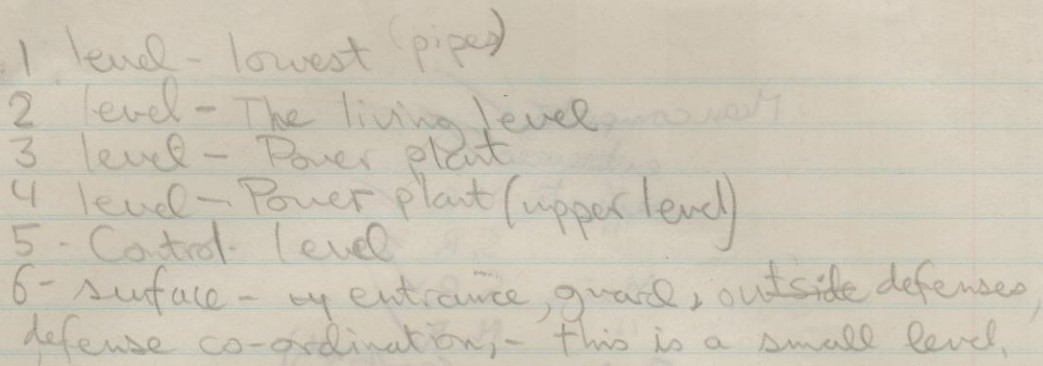 1 level - lowest (pipes)
2 level - The living level
3 level - Power plant
4 level - Power plant (upper level)
5 - Control level
6 - surface - entrance, guard, outside defenses,
defense co-ordination, - this is a small level.